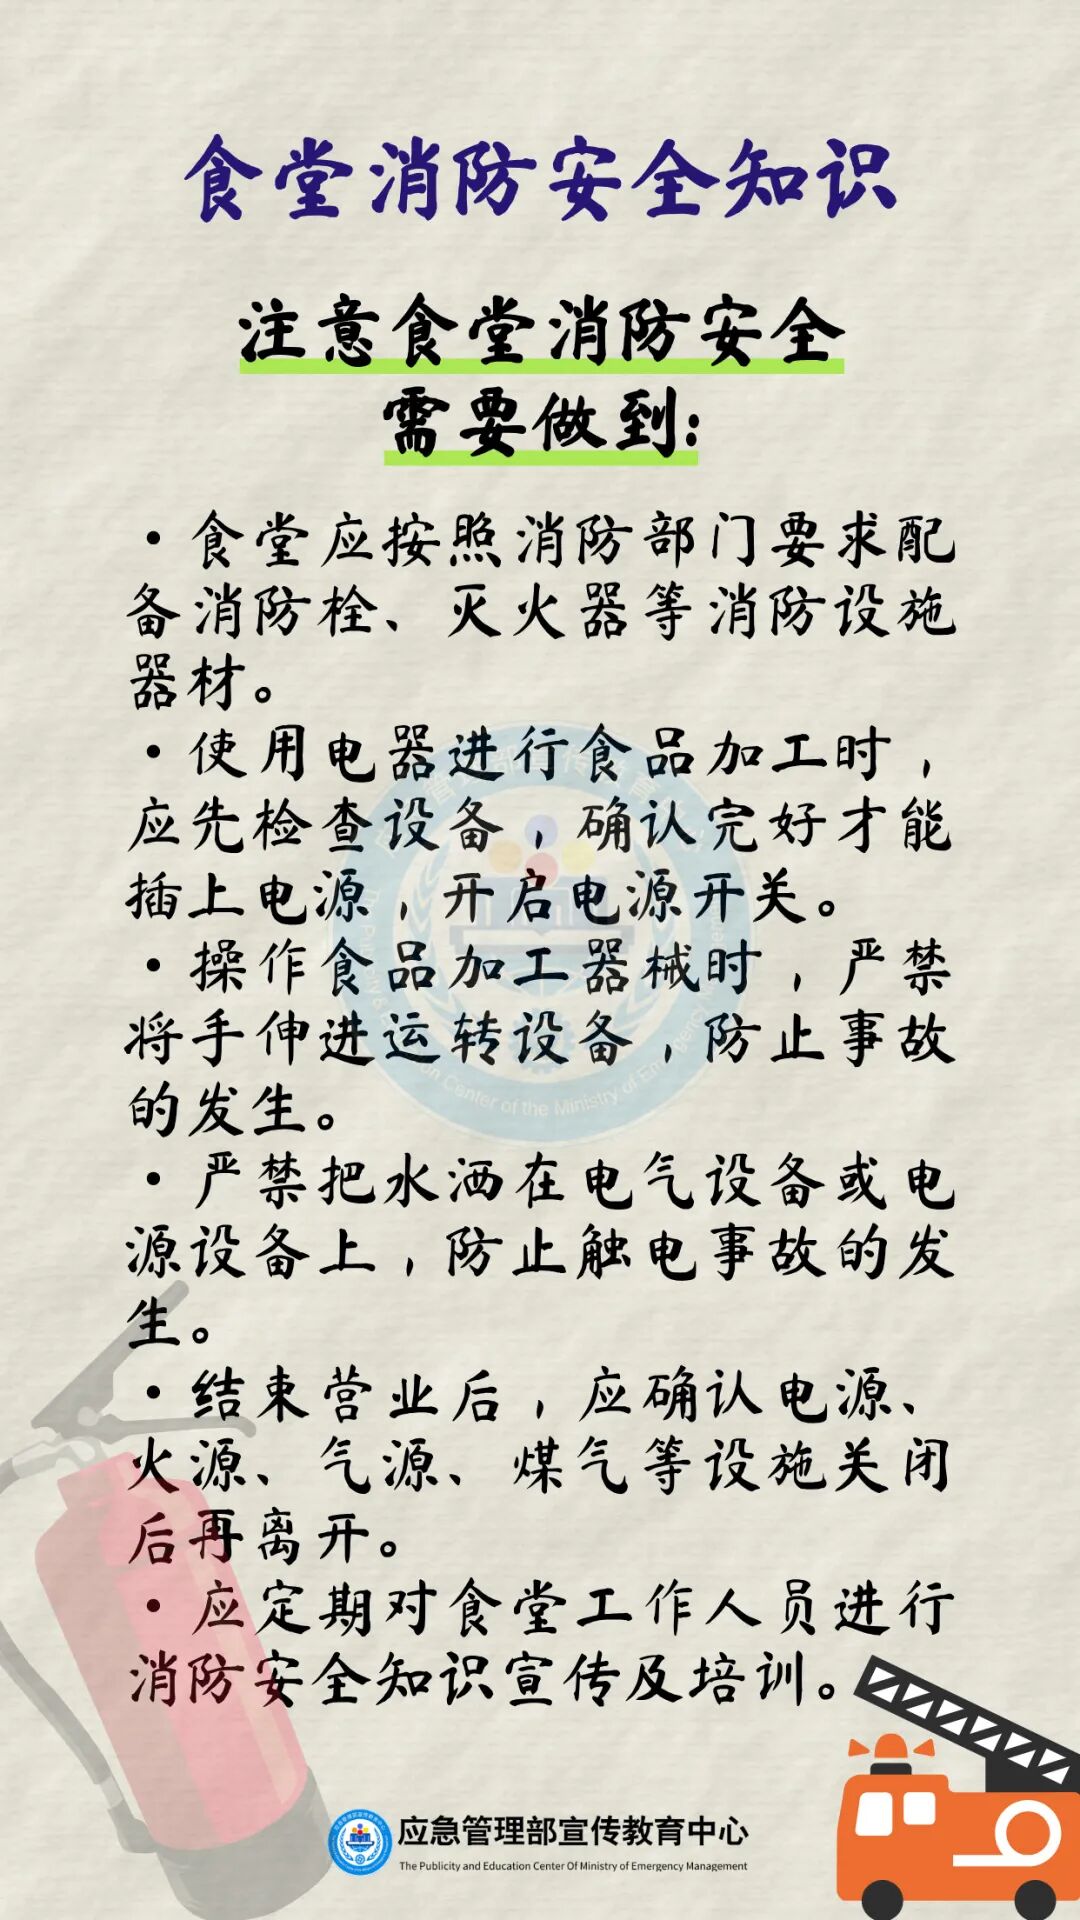 食堂消防安全知识
注意食堂消防安全
需要做到:
·食堂应按照消防部门要求配
备消防栓、灭火器等消防设施
器材。
·使用电器进行食品加工时，
应先检查设备，确认完好才能
插上电源，开启电源开关。
·操作食品加工器械时，严禁
将手伸进运转设备，防止事故
的发生。
·严禁把水洒在电气设备或电
源设备上，防止触电事故的发
生。
·结束营业后，应确认电源、
火源、气源、煤气等设施关闭
后再离开。
·应定期对食堂工作人员进行
消防安全知识宣传及培训。
应急管理部宣传教育中心
The Publicity and Education Center Of Ministry of Emergency Management